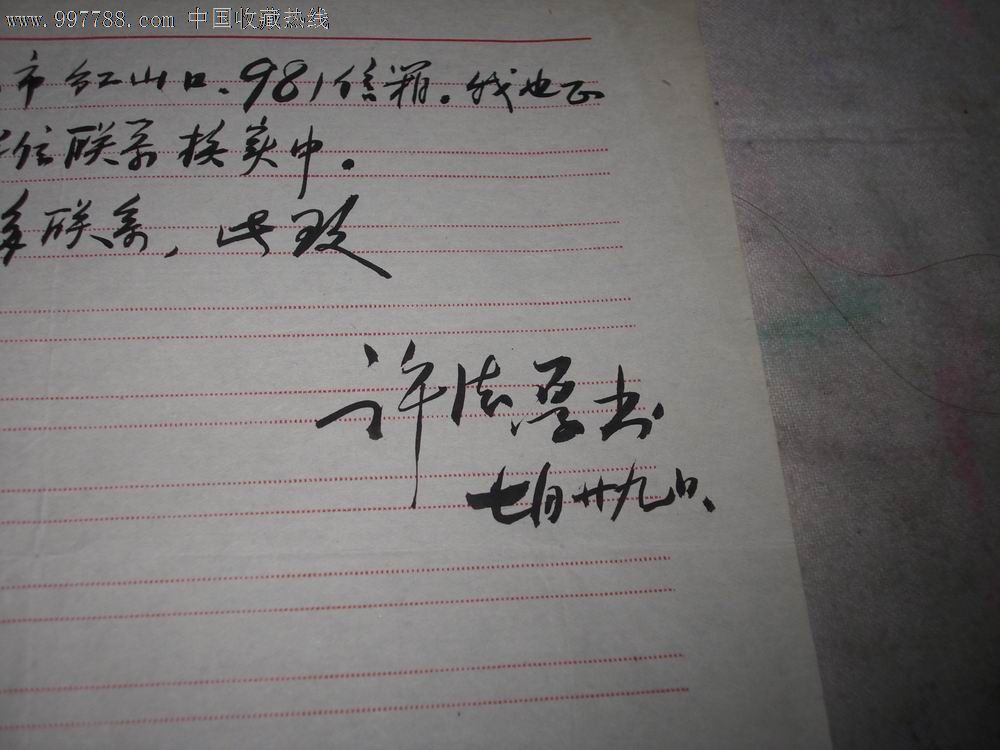 www.997788.com 中国收藏热线
市红山口、981信箱。我也正
联系核实中。
多联系，此致
许法厚书
七月廿九日、